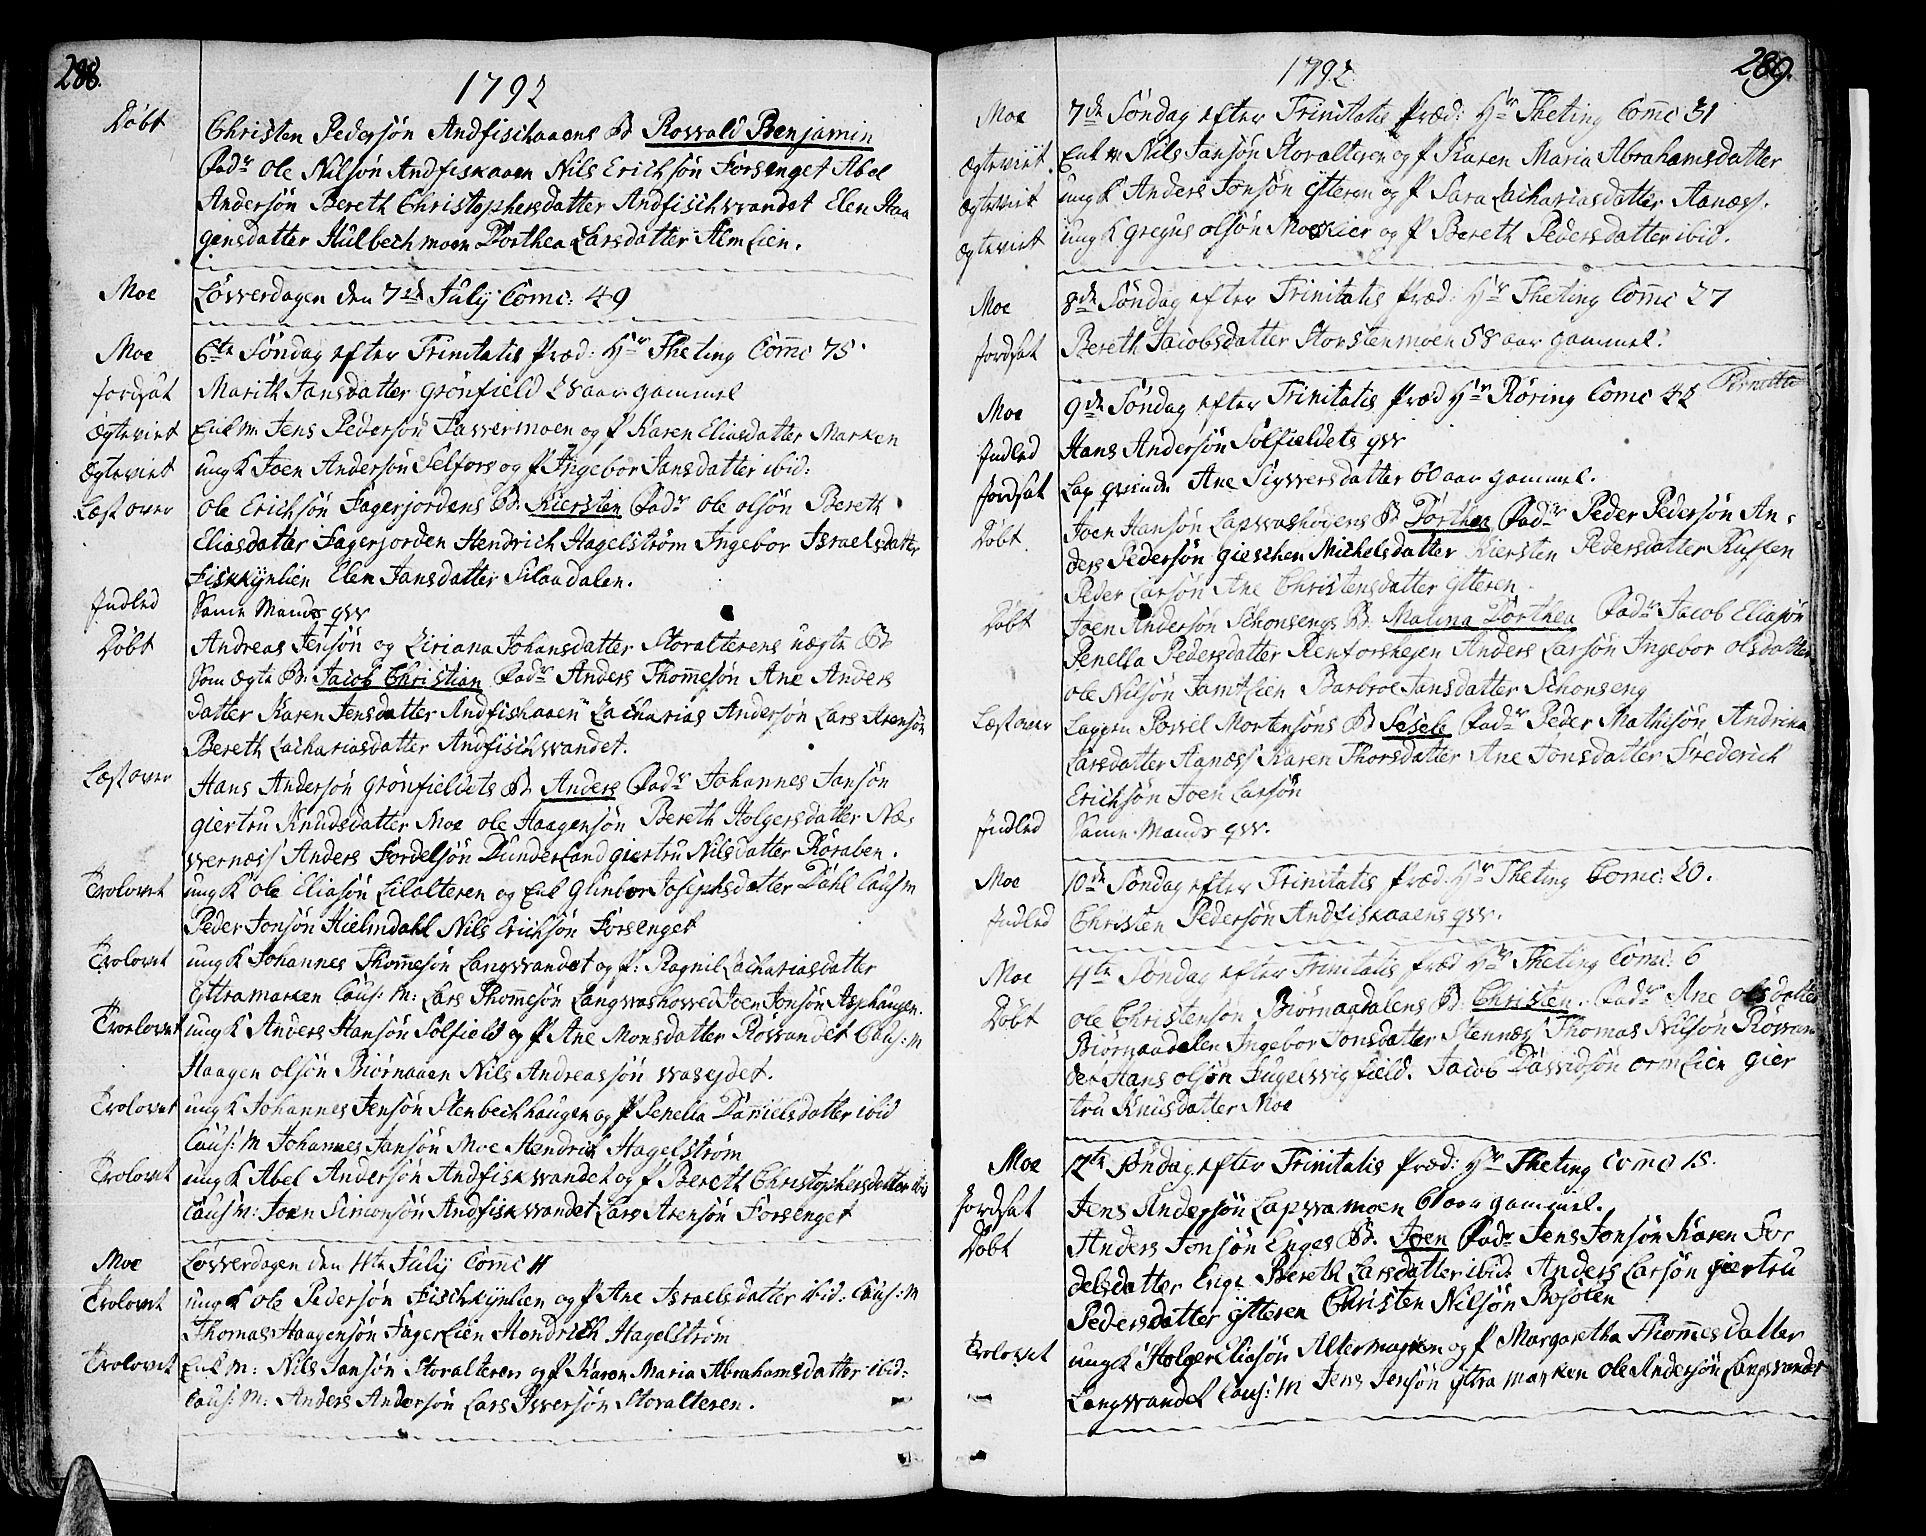 288.
1792
Døbt Christen Pedersøn Andfischaaens B. Rosvald Benjamin
Fadr Ole Nilsøn Andfiskaaen Nils Erichsøn Forsenget Abel
Andersøn Bereth Christophersdatter Andfischvandet Elen Haa
gensdatter Hulbechmoen Dorthea Larsdatter Almlien.
Moe Løverdagen den 7de July Comc: 49
Moe 6te Søndag efter Trinitatis Præd: Hr Theting Comc 75.
Jordsat Marith Jansdatter Grønfield 28 aar gammel
Ægteviet Enk M. Jens Pedersøn Savermoen og P Karen Eliasdatter Marken
Ægteviet ung K Joen Andersøn Selfors og P Ingebor Jansdatter ibid:
Læst over Ole Erichsøn Fagerjordens B. Kiersten Fadr Ole Olsøn Bereth
Eliasdatter Fagerjorden Hendrich Hagelstrøm Ingebor Israelsdatter
Fiskkynlien Elen Jansdatter Silaadalen.
Indled Same Mands qvv
Døbt Andreas Jensøn og Liriana Johansdatter Storalterens uægte B
Som ægte B. Jacob Christian Fadr Anders Thomesøn Ane Anders
datter Karen Jensdatter Andfiskaaen Zacharias Andersøn Lars Arensøn
Bereth Zachariasdatter Andfischvandet.
Læst over Hans Andersøn Grønfieldets B. Anders Fadr Johannes Jansøn
Giertru Knudsdatter Moe Ole Haagensøn Bereth Holgersdatter Næ-
vernæss Anders Fordelsøn Dunderland Giertru Nilsdatter Røraben.
Trolovet ung K Ole Eliasøn Lilalteren og Enk Gunbor Josephsdatter Dahl Caus M
Peder Jonsøn Hielmdahl Nils Erichsøn Forsenget
Trolovet ung K Johannes Thomesøn Langvandet og P: Ragnil Zachariasdatter
Yttramarken Caus: M: Lars Thomesøn Langvashoved Joen Jonsøn Asphaugen.
Trolovet ung K Anders Hansøn Solfield og P Ane Monsdatter Røsvandet Caus: M
Haagen Olsøn Biørnaaen Nils Andreassøn Vasejdet.
Trolovet ung K Johannes Jensøn Stenbechhaugen og P Penelia Danielsdatter ibid
Caus: M Johannes Jansøn Moe Hendrich Hagelstrøm
Trolovet ung K Abel Andersøn Andfiskvandet og P Bereth Christophersdatter ibid
Caus M: Joen Simonsøn Andfiskvandet Lars Arensøn Forsenget
Moe Løverdagen den 14te July Comc 11
Trolovet ung K Ole Pedersøn Fischkynlien og P Ane Israelsdatter ibid: Caus: M
Thomas Haagensøn Fagerlien Hendrich Hagelstrøm
Trolovet Enk M: Nils Jansøn Storalteren og P Karen Maria Abrahamsdatter ibid:
Caus: M: Anders Andersøn Lars Iversøn Storalteren.
289.
1792
Moe 7de Søndag efter Trinitatis Præd: Hr Theting Comc 31
Ægteviet Enk M Nils Jansøn Storalteren og P Karen Maria Abrahamsdatter
Ægteviet ung K Anders Jonsøn Ytteren og P Sara Zachariasdatter Aanæss.
Ægteviet ung K Gregus Olsøn Moskier og P Bereth Pedersdatter ibid.
Moe 8de Søndag efter Trinitatis Præd: Hr Theting Comc 27
Jordsat Bereth Jacobsdatter Storstenmoen 58 aar gammel.
Moe 9de Søndag efter Trinitatis Præd Hr Røring Comc 42
Indled Hans Andersøn Solfieldets qvv
Jordsat Lap qvinde Ane Sigversdatter 60 aar gammel.
Døbt Joen Hansøn Lapvashøiens B Dorthea Fadr Peder Pedersøn An-
ders Pedersøn Gieschen Michelsdatter Kiersten Pedersdatter Kusken
Peder Larsøn Ane Christensdatter Ytteren
Døbt Joen Andersøn Schonsengs B. Malena Dorthea Fadr Jacob Eliasøn
Penella Pedersdatter Renforshejen Anders Larsøn Ingebor Olsdatter
Ole Nilsøn Jamtlien Barbroe Jansdatter Schonseng
Læst over Lappen Povel Mortensøns B Sesele Fadr Peder Mathisøn Andrina
Larsdatter Aanæss Karen Thorsdatter Ane Jonsdatter Frederich
Erichsøn Joen Larsøn
Indled Same Mands qvv.
Moe 10de Søndag efter Trinitatis Præd. Hr Theting Comc: 20.
Indled Christen Pedersøn Andfiskaaens qvv.
Moe 11te Søndag efter Trinitatis Præd Hr Theting Comc: 6
Døbt Ole Christensøn Biørnaadalens B. Christen. Fadr Ane Olsdatter
Biørnaadalen Ingebor Jonsdatter Stennæs Thomas Nilsøn Røsvan
det Hans Olsøn Fugelvigfield. Jacob Davidsøn Ormlien Gier
tru Knusdatter Moe
Moe 12te Søndag efter Trinitatis Præd: Hr Theting Comc 15.
Jordsat Jens Andersøn Lapvamoen 61 aar gammel.
Døbt Anders Jonsøn Enges B. Joen Fadr Jens Jonsøn Karen For
delsdatter Enge Bereth Larsdatter ibid: Anders Larsøn Giertru
Pedersdatter Ytteren Christen Nilsøn Bosoten
Trolovet ung K Holger Eliasøn Altermarken og P Margaretha Thomesdatter
Langvandet Caus: M Jens Jensøn Yttramarken Ole Andersøn Langvandet